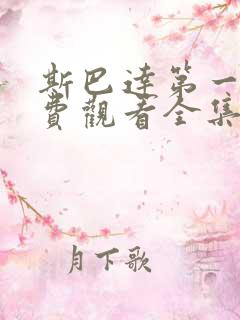 斯巴達第一
費觀看全集
月下歌